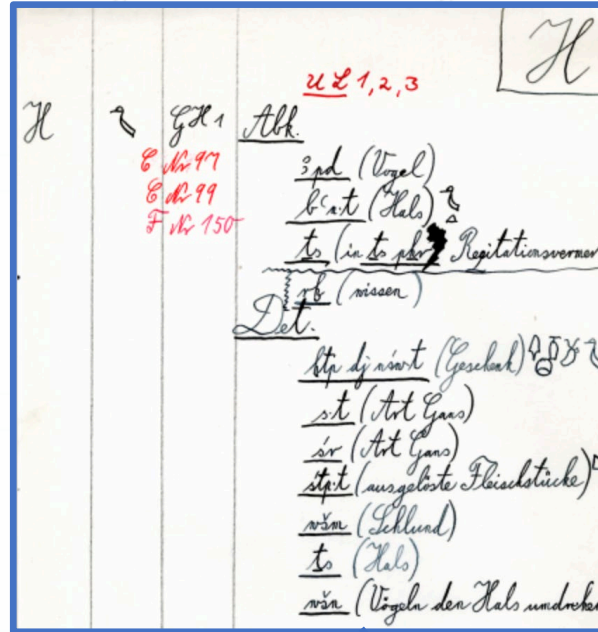 H
U L 1, 2, 3
H GH 1 Abk.
C Nr 97 ꜣpd (Vogel)
C Nr 99 bꜥn.t (Hals)
F Nr 150 ṯs (in ṯs pẖr) Rezitationsvermer
rḫ (wissen)
Det.
ḥtp dj nśw.t (Geschenk)
s.t (Art Gans)
śr (Art Gans)
śtp.t (ausgelöste Fleischstücke)
wšm (Schlund)
ṯs (Hals)
wšn (Vögeln den Hals umdrehen